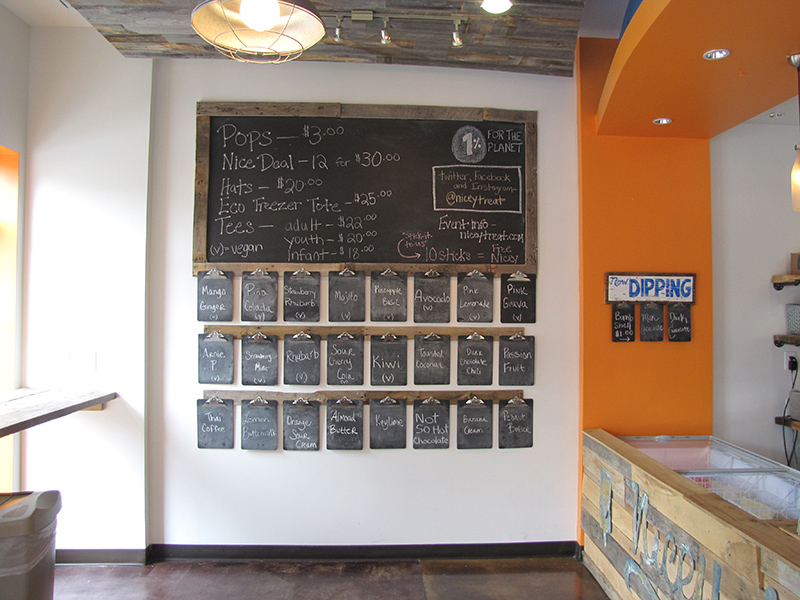 Pops — $3.00
Nice Deal - 12 for $30.00
Hats - $20.00
Eco Freezer Tote - $25.00
Tees - adult - $22.00
youth - $20.00
Infant - $18.00
(v) - vegan
1%
FOR THE
PLANET
twitter, Facebook
and Instagram -
@niceytreat
Event info -
niceytreat.com
"Stick it
to us"
10 sticks = Free
Nicey
Mango
Ginger
(v)
Pina
Colada
(v)
Strawberry
Rhubarb
(v)
Mojito
(v)
Pineapple
Basil
(v)
Avocado
(v)
Pink
Lemonade
(v)
Pink
Guava
(v)
Arnie
P.
(v)
Strawberry
Mint
(v)
Rhubarb
(v)
Sour
Cherry
(v)
Kiwi
(v)
Toasted
Coconut
Dark
Chocolate
Chili
Passion
Fruit
Thai
Coffee
Lemon
Buttermilk
Orange
Sour
Cream
Almond
Butter
Key Lime
Not
So Hot
Chocolate
Banana
Cream
Peanut
Butter
Now DIPPING
Bomb
Shell
$1.00
Milk
Chocolate
Dark
Chocolate
Nicey